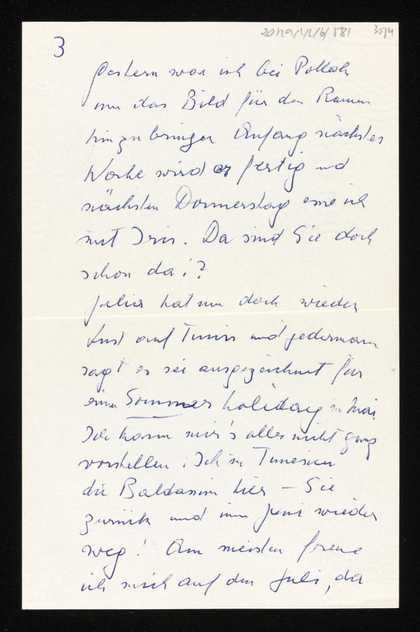 3
Gestern war ich bei Pollak
um das Bild für den Ramen
hinzubringen Anfang nächster
Woche wird er fertig und
nächsten Donnerstag esse ich
mit Iris. Da sind Sie doch
schon da!?
hat nun doch wieder
Lust auf Tunis und jedermann
sagt es sei ausgezeichnet für
eine Sommer holiday in Mai
Ich kann mir's alles nicht ganz
vorstellen. Ich in Tunesien
die Baldassini hier – Sie
zurück und wieder
weg! Am meisten freue
ich mich auf den Juli, da